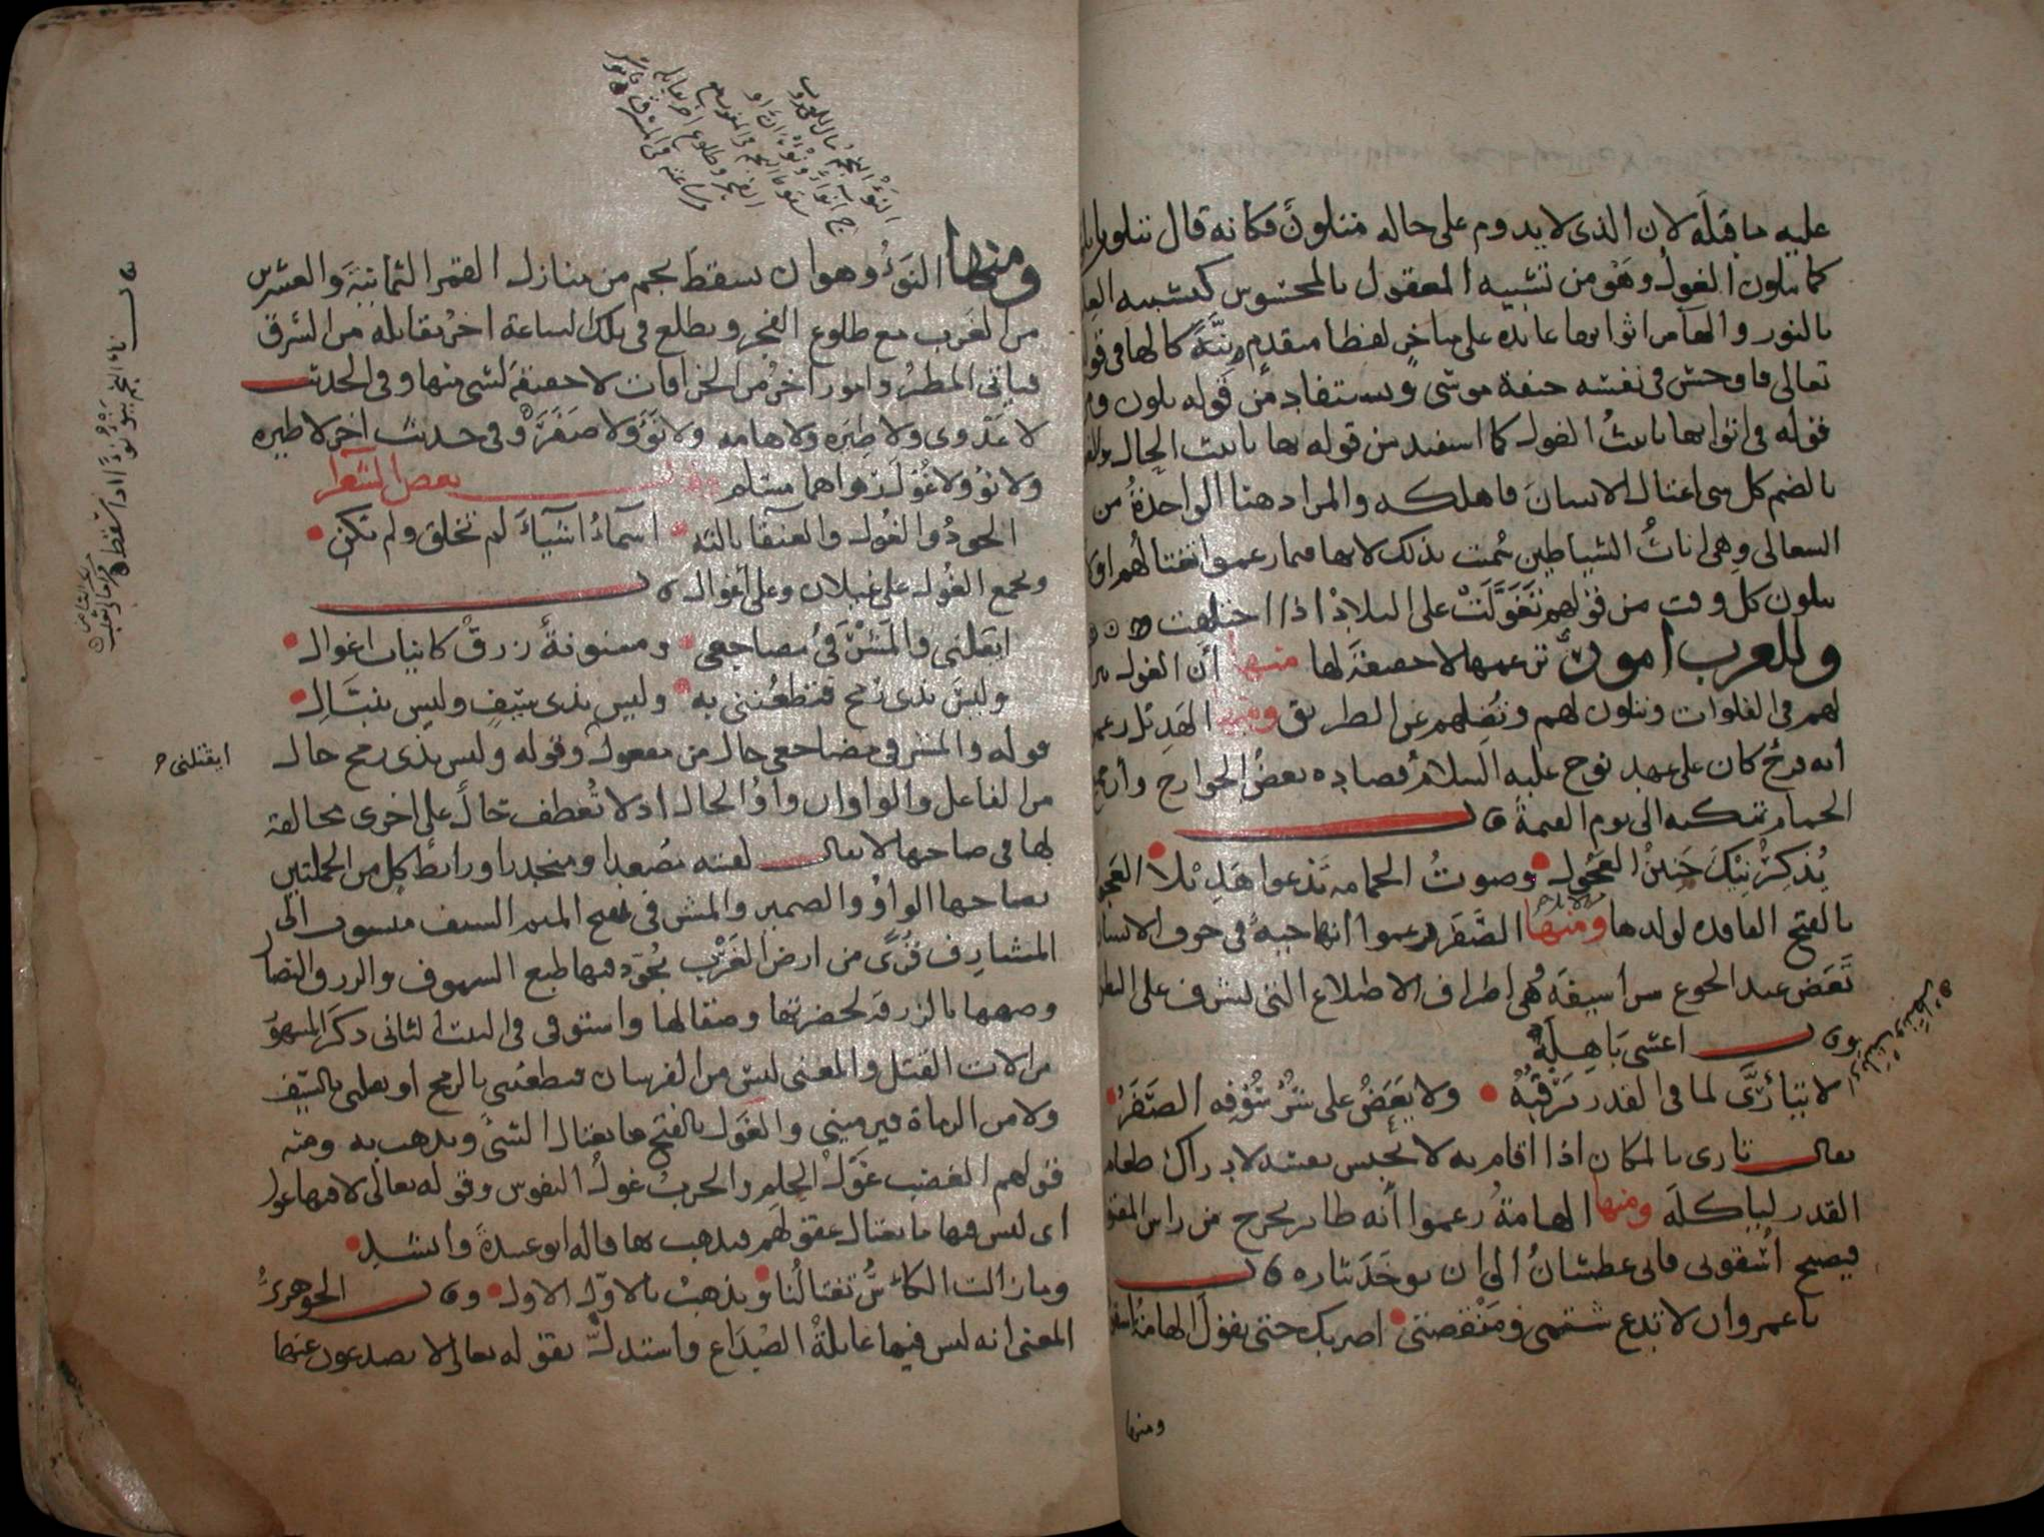 عليه ما قبله لان الذى لا يدوم على حاله متلون فكانه قال تتلون
كما تلون الغول وهو من تشبيه المعقول بالمحسوس كتشبيه العلم
بالنور والها من اثوابها عايده على متاخر لفظا متقدم رتبة كالها فى قوله
تعالى فاوجس فى نفسه خيفة موسى ويستفاد من قوله تلون
قوله فى اثوابها تانيث الغول كما استفيد من قوله بها تانيث الحال والغول
بالضم كل شى اغتال الانسان فاهلكه والمراد هنا الواحدة من
السعالى وهى اناث الشياطين سمت بذلك لانها فيما زعموا تغتالهم او
تتلون كل وقت من قولهم تغولت على البلاد اذا اختلفت
وللعرب امور تزعمها لا حقيقة لها منها أن الغول
لهم فى الفلوات وتتلون لهم وتضلهم عن الطريق ومنها الهديل زعموا
أنه فرخ كان على عهد نوح عليه السلام فصاده بعض الجوارح وأن جميع
الحمام تبكيه الى يوم القيمة قال
يذكرنيك حنين العجول وصوت الحمامه تدعوا هديلا العجول
بالفتح الفاقده لولدها ومنها الصفر زعموا أنها حية فى جوف الانسان
تعض عند الجوع شراسيفه وهى اطراف الاضلاع التى تشرف على البطن
قال اعشى باهلة
لا يتأرى لما فى القدر يرقبه ولا يعض على شرسوفه الصفر
يقال تارى بالمكان اذا اقام به لا يحبس نفسه لادراك طعام
القدر لياكله ومنها الهامة زعموا أنه طائر يخرج من راس المقتول
فيصيح اسقونى فانى عطشان الى ان يوخذ بثاره قال
يا عمرو ان لا تدع شتمى ومنقصتى اضربك حتى تقول الهامة اسقونى
ومنها
ومنها النوء وهو ان يسقط نجم من منازل القمر الثمانية والعشرين
من الغرب مع طلوع الفجر ويطلع فى تلك الساعة اخر يقابله من الشرق
فياتى المطر وامور اخر من الخرافات لا حقيقة لشى منها وفى الحديث
لا عدوى ولا طيره ولا هامه ولا نوء ولا صفر وفى حديث اخر لا طيره
ولا نوء ولا غول رواهما مسلم وقال بعض الشعرا
الجود والغول والعنقا ثالثة اسماء اشياء لم تخلق ولم تكن
ويجمع الغول على غيلان وعلى أغوال قال
ايقتلنى والمشرفى مضاجعى ومسنونة زرق كانياب اغوال
وليس بذى رمح فيطعننى به وليس بذى سيف وليس بنبال
قوله والمشرفى مضاجعى حال من مفعول وقوله وليس بذى رمح حال
من الفاعل والواوان واوا الحال اذ لا تعطف حال على اخرى مخالفة
لها فى صاحبها لا يقال لقيته مصعدا ومنحدرا ورابط كل من الجملتين
بصاحبها الواو والضمير والمشرفى بفتح الميم السيف منسوب الى
المشارف قرى من ارض العرب يجود فيها طبع السيوف والزرق النصال
وصفها بالزرقة لخضرتها وصقالها واستوفى فى البيت الثانى ذكر المشهور
من الات القتل والمعنى ليس من الفرسان فيطعننى بالرمح او يقتلنى بالسيف
ولا من الرماة فيرمينى والغول بالفتح ما يغتال الشئ ويذهب به ومنه
قولهم الغضب غول الحلم والحرب غول النفوس وقوله تعالى لا فيها غول
اى ليس فيها ما يغتال عقولهم فيذهب بها قاله ابو عبيدة وانشد
وما زالت الكأس تغتالنا وتذهب بالاول الاول وقال الجوهرى
المعنى انه ليس فيها غايلة الصداع واستدل بقوله تعالى لا يصدعون عنها
ايقتلنى